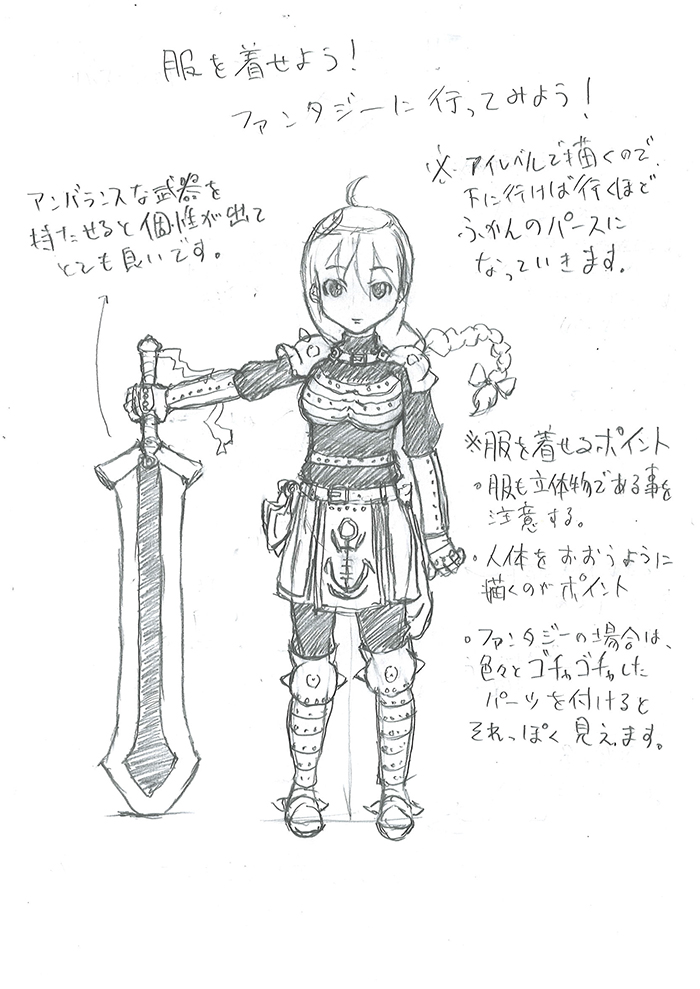 服を着せよう!
ファンタジーに行ってみよう!
※アイレベルで描くので、
下に行けば行くほど
ふかんのパースに
なっていきます。
アンバランスな武器を
持たせると個性が出て
とても良いです。
※服を着せるポイント
・服も立体物である事を
注意する。
・人体をおおうように
描くのがポイント
・ファンタジーの場合は、
色々とゴチャゴチャした
パーツを付けると
それっぽく見えます。